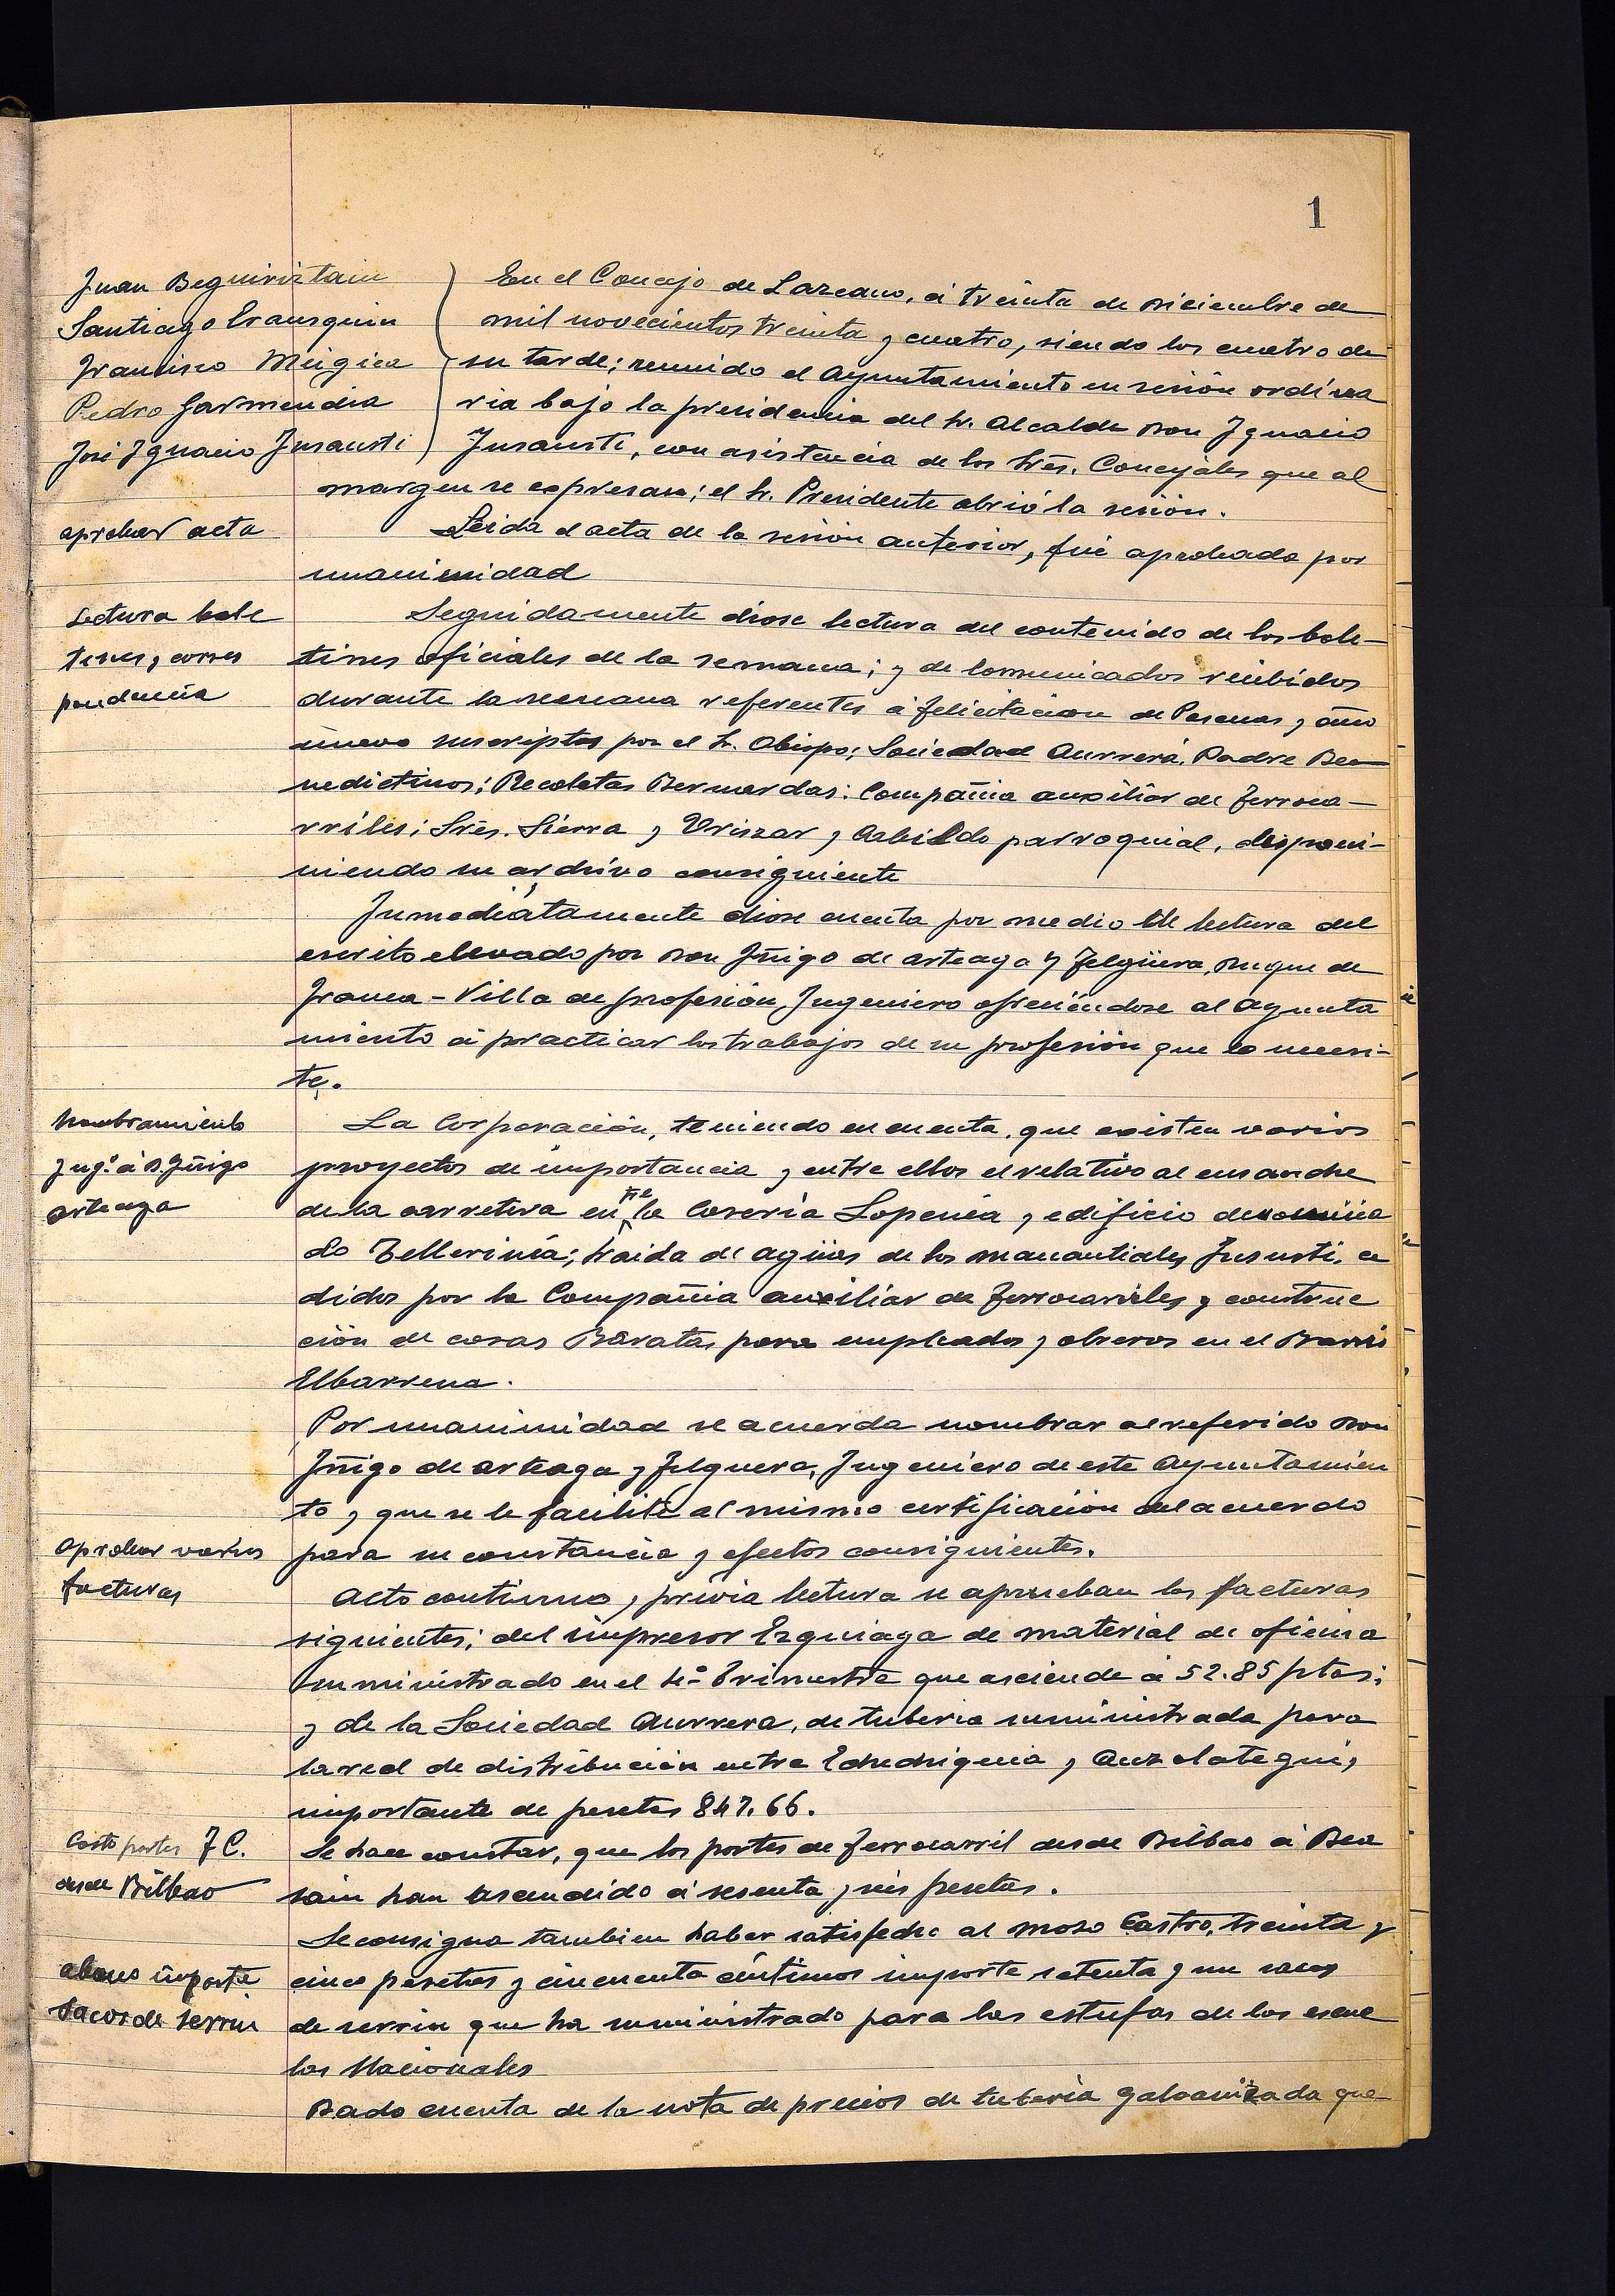 1
Juan Beguiristain
Santiago Irausquin
Francisco Múgica
Pedro Garmendia
José Ignacio Insausti
En el Concejo de Lazcano, á treinta de Diciembre de
mil novecientos treinta y cuatro, siendo las cuatro de
su tarde; reunido el Ayuntamiento en sesión ordina
ria bajo la presidencia del Sr. Alcalde Don Ignacio
Insausti, con asistencia de los Srēs. Concejales que al
margen se expresan; el Sr. Presidente abrió la sesión.
aprobar acta
Leida el acta de la sesión anterior, fué aprobada por
unanimidad
Lectura bole
tines y corres
pondencia
Seguidamente diose lectura del contenido de los bole-
tines oficiales de la semana; y de comunicados recibidos
durante la semana referentes á felicitación de Pascuas y año
nuevo suscriptos por el Sr. Obispo; Sociedad Aurrerá, Padre Be
nedictinos; Recoletas Bernardas; Compañia auxiliar de Ferroca-
rriles; Srēs. Sierra y Urizar y Cabildo parroquial, disponi-
niendo su archivo consiguiente
Inmediatamente diose cuenta por medio de lectura del
escrito elevado por Don Iñigo de Arteaga y Felgüera, Duque de
Franca-Villa de profesión, Ingeniero ofreciéndose al Ayunta
miento á practicar los trabajos de su profesión que lo necesi-
te.
Nombramiento
Ingº á D. Iñigo
Arteaga
La Corporación, teniendo en cuenta, que existen varios
proyectos de importancia y entre ellos el relativo al ensanche
de la carretera en la Caseria Lopenéa y edificio denomina
do Tellerinia; traida de aguas de los manantiales Insusti, ce
didos por la Compañia auxiliar de Ferrocarriles y construc
ción de casas Baratas para empleados y obreros en el Barrio
Elbarrena.
Por unanimidad se acuerda nombrar al referido Don
Iñigo de Arteaga y Felguera, Ingeniero de este Ayuntamien
to y que se le facilite al mismo certificación del acuerdo
para su constancia y efectos consiguientes.
Aprobar varias
facturas
Acto continuo y previa lectura se aprueban las facturas
siguientes; del impresor Ezquiaga de material de oficina
suministrado en el 4.º Trimestre que asciende á 52.85 ptas;
y de la Sociedad Aurrera, de tuberia suministrada para
la red de distribución entre Echechiquia y Auzolategui,
importante de pesetas 847.66.
Costo portes F C.
desde Bilbao
Se hace constar, que los portes de Ferrocarril desde Bilbao á Bea
sain han ascendido á sesenta y seis pesetas.
Se consigna tambien haber satisfecho al mozo Castro, treinta y
abono importe
sacos de serrin
cinco pesetas y cincuenta céntimos importe setenta y un sacos
de serrin que ha suministrado para las estufas de las escue
las Nacionales
Dado cuenta de la nota de precios de tuberia galvanizada que